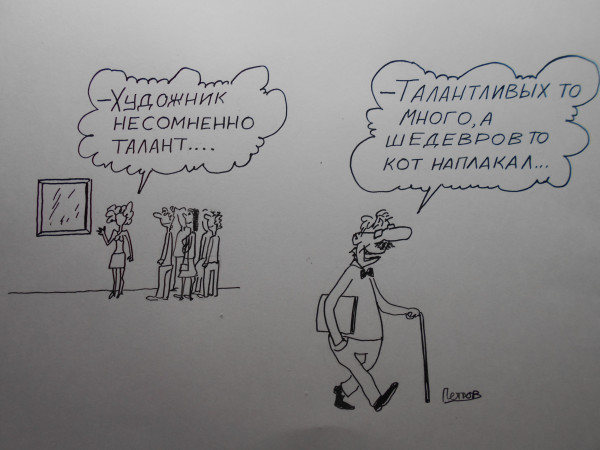 -ХУДОЖНИК
НЕСОМНЕННО
ТАЛАНТ....
-ТАЛАНТЛИВЫХ ТО
МНОГО, А
ШЕДЕВРОВ ТО
КОТ НАПЛАКАЛ...
Петров